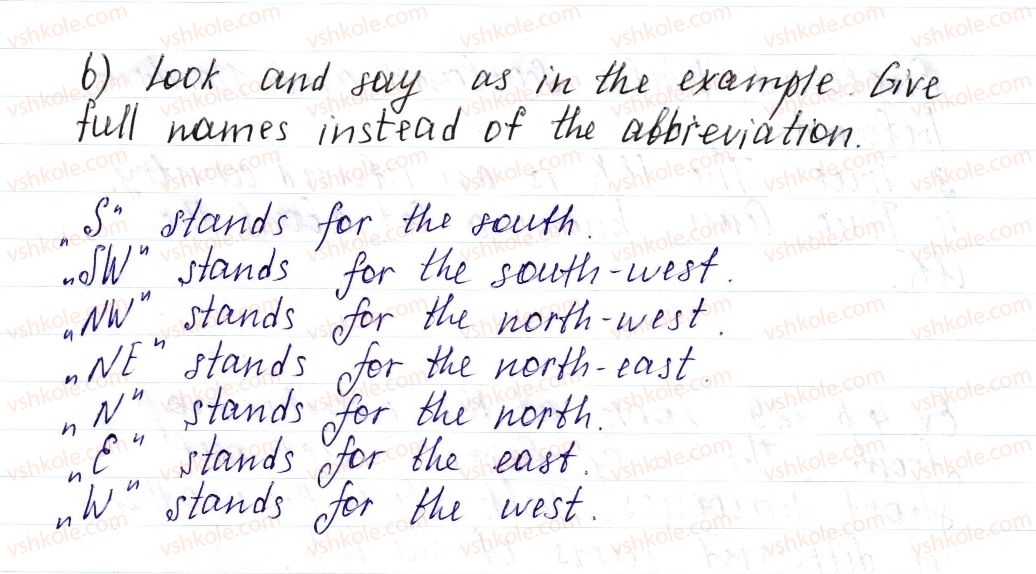 b) Look and say as in the example. Give
full names instead of the abbreviation.
„S" stands for the south.
„SW" stands for the south-west.
„NW" stands for the north-west.
„NE" stands for the north-east.
„N" stands for the north.
„E" stands for the east.
„W" stands for the west.
vshkole.com